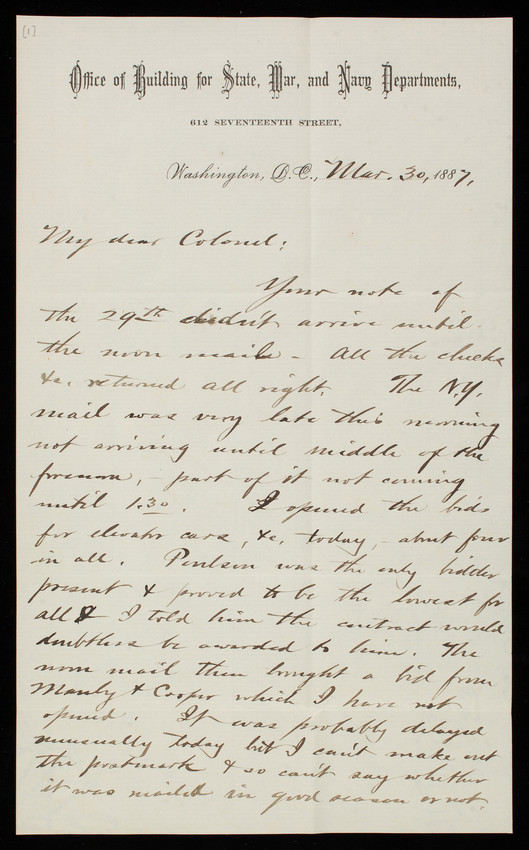 [1]
Office of Building for State, War, and Navy Departments,
612 SEVENTEENTH STREET,
Washington, D.C., Mar. 30, 1887,
My dear Colonel:
Your note of
the 29th didn't arrive until
the noon mail - All the checks
&c. returned all right. The N.Y.
mail was very late this morning
not arriving until middle of the
forenoon, - part of it not coming
until 1.30. I opened the bids
for elevator cars, &c, today, - about four
in all. Poulson was the only bidder
present & proved to be the lowest for
all & I told him the contract would
doubtless be awarded to him. The
noon mail then brought a bid from
Manly & Cooper which I have not
opened. It was probably delayed
unusually today but I can't make out
the postmark & so can't say whether
it was mailed in good season or not.